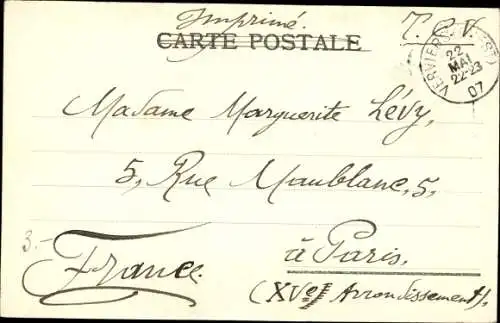 Imprimé. T.C.V.
CARTE POSTALE
VERVIERS (OUEST)
22
MAI
22-23
07
Madame Marguerite Lévy,
5, Rue Maublanc, 5,
à Paris.
3.-
France.
(XVe Arrondissement).